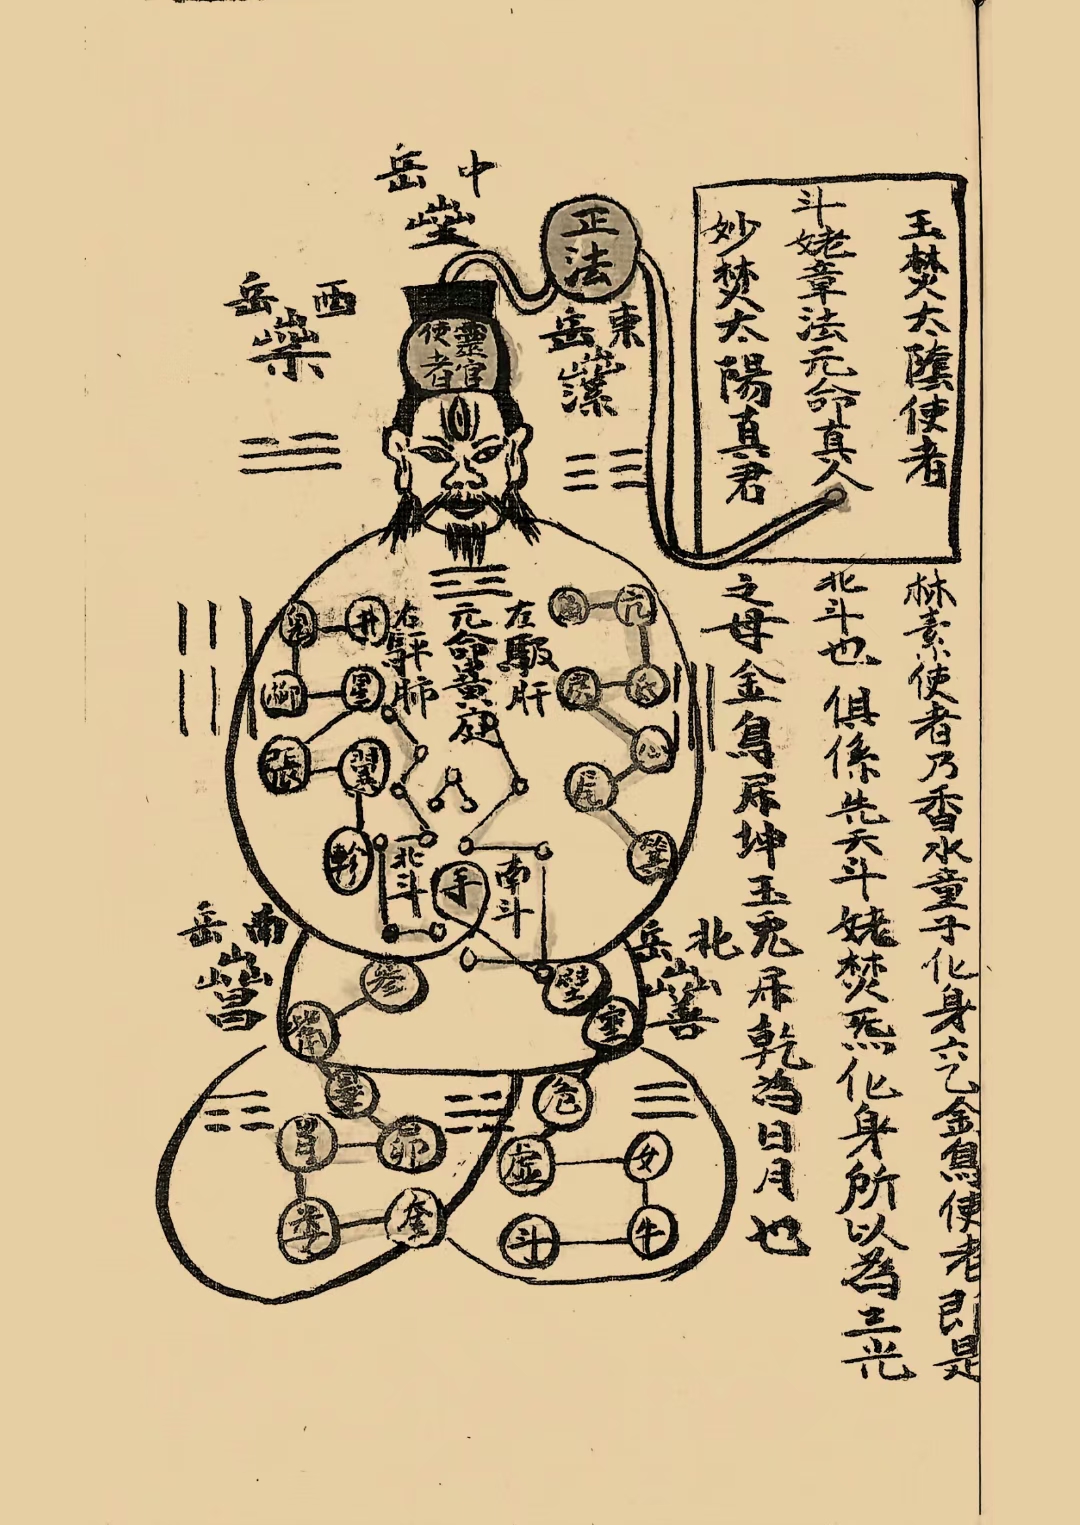 玉焚太陰使者
斗姥章法元命真人
妙焚太陽真君
林素使者乃香水童子化身六乙金鳥使者即是
北斗也俱係先天斗姥焚炁化身所以為三光
之母金鳥居坤玉兎居乾為日月也
正法
中岳
東岳
西岳
南岳
北岳
靈官使者
左
肝
元命黃庭
右
肺
亢
氐
房
心
尾
箕
井
鬼
柳
星
張
翼
軫
北斗
手
南斗
參
觜
畢
昴
胃
婁
奎
壁
室
危
虛
女
牛
斗